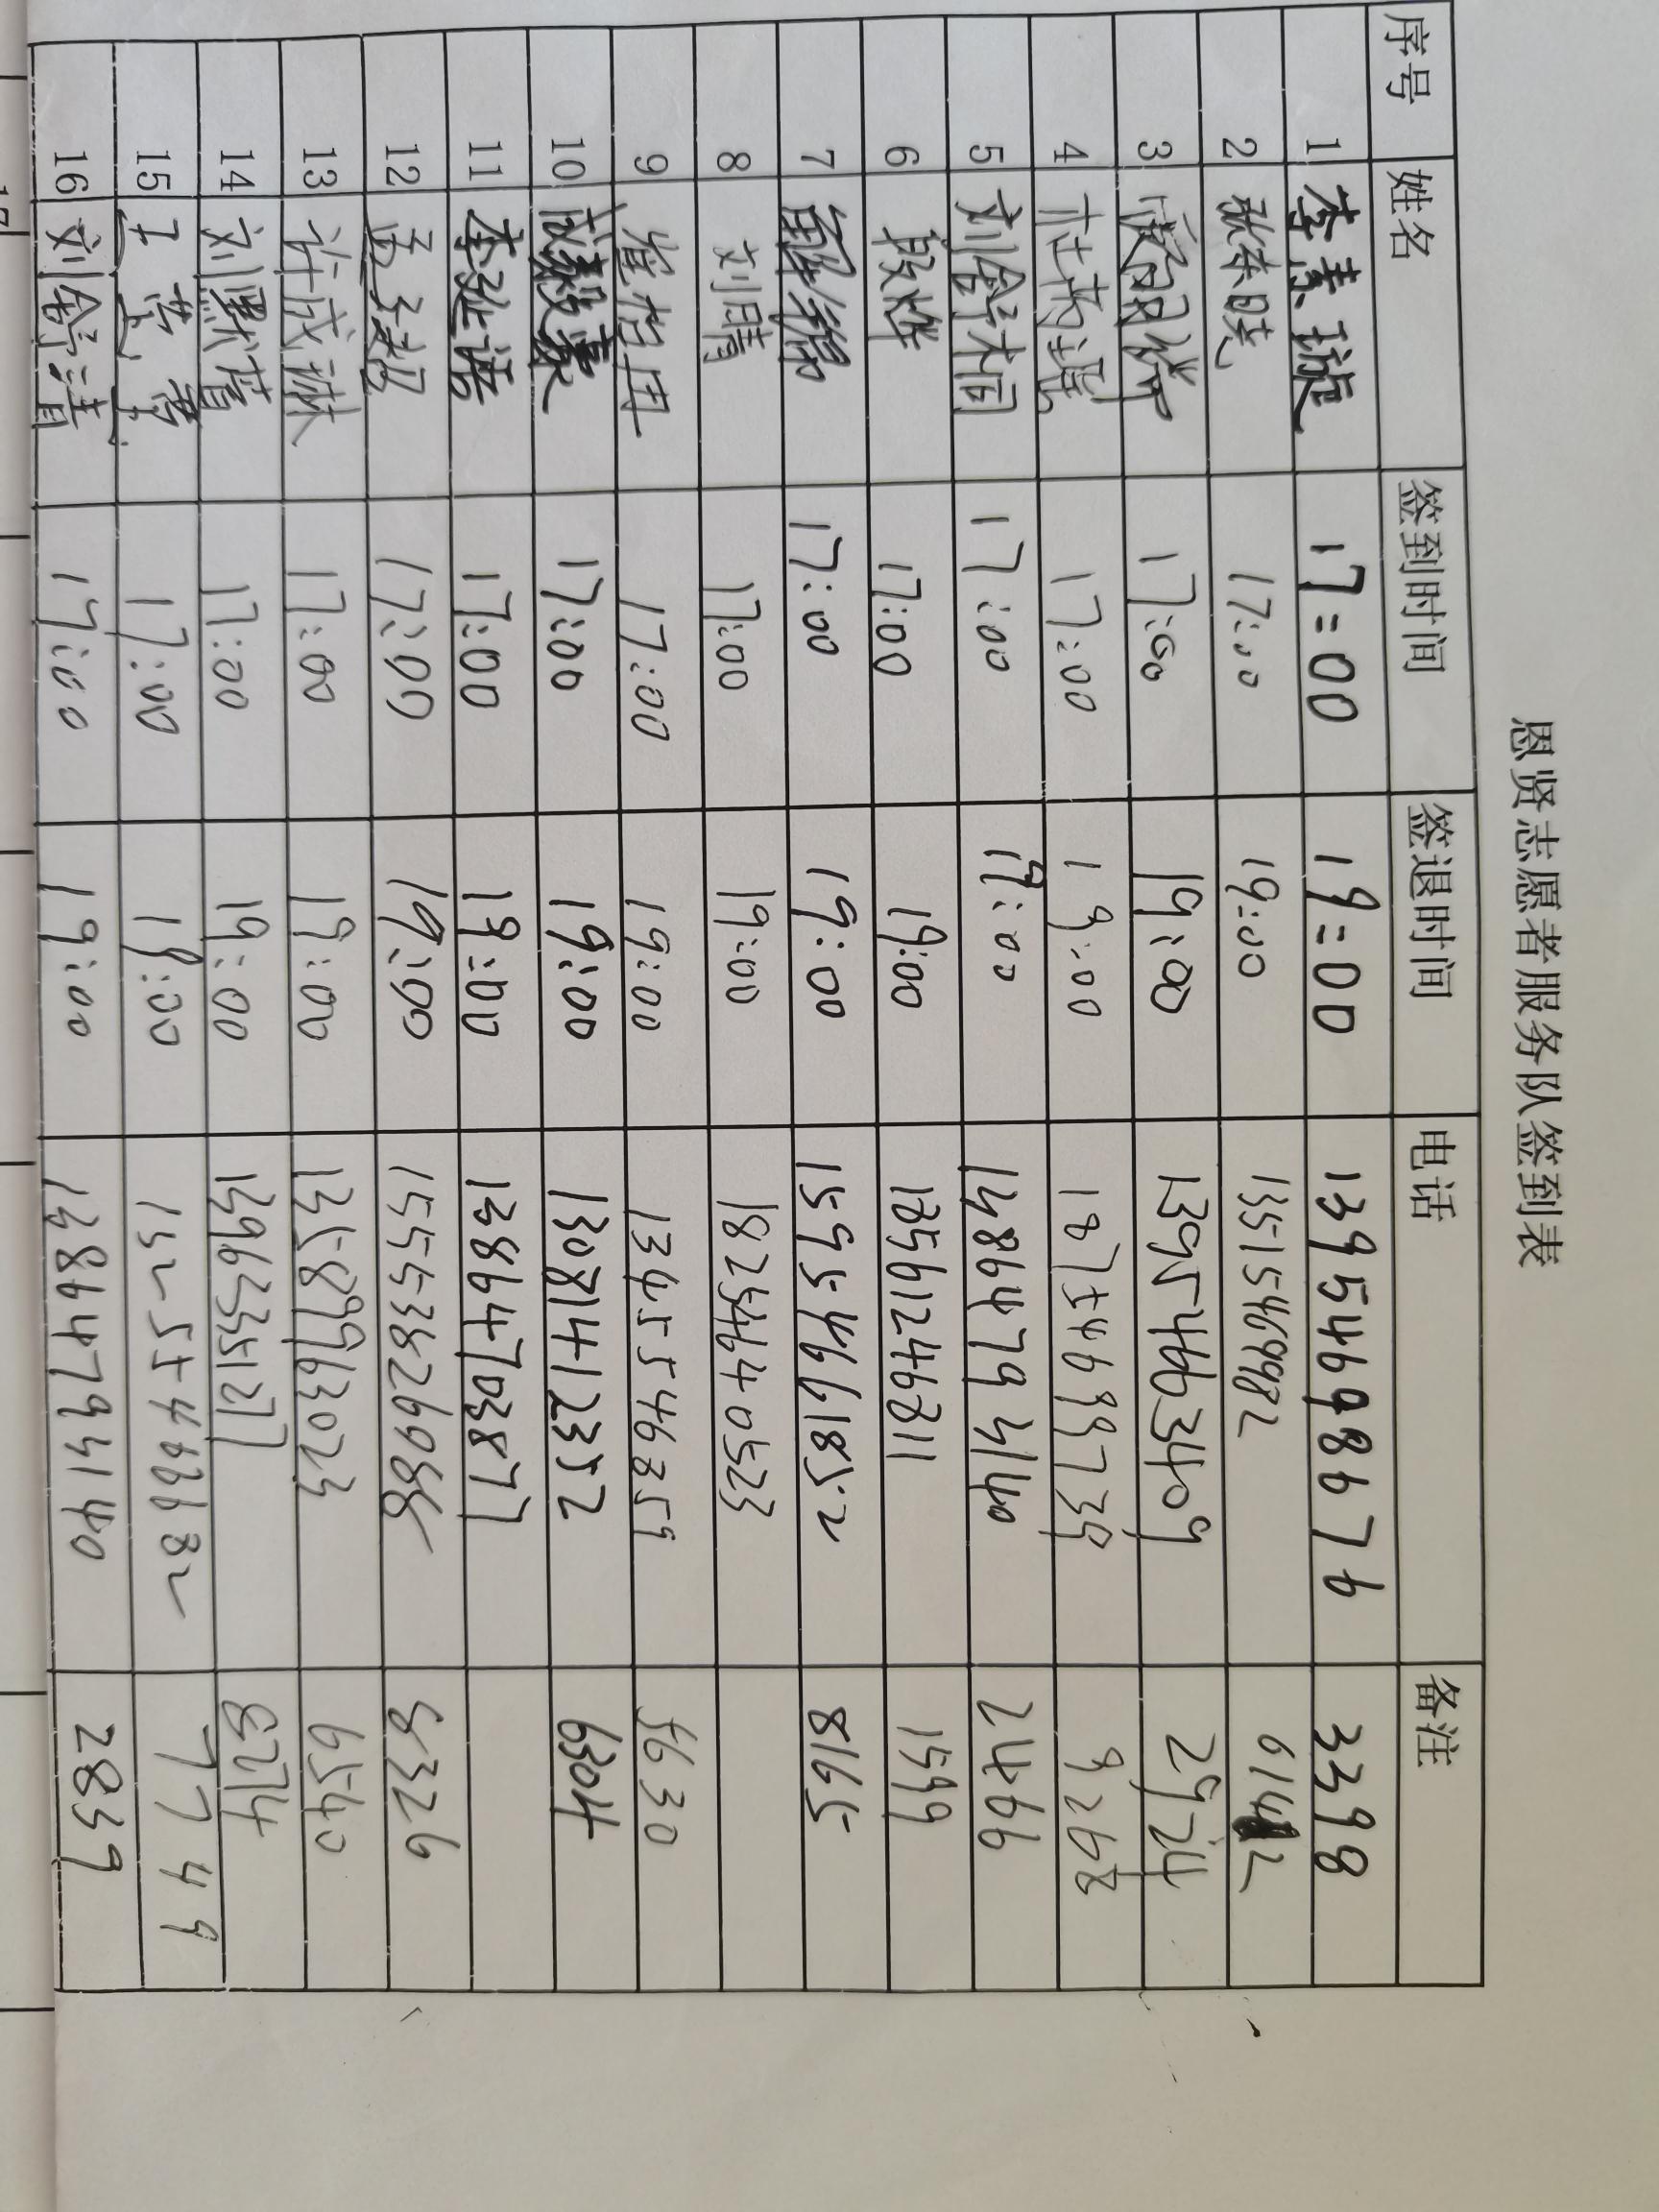 恩贤志愿者服务队签到表
序号 姓名 签到时间 签退时间 电话 备注
1 李素璇 17:00 19:00 13954698676 3398
2 张荣晓 17:00 19:00 13515469982
3 17:00 19:00 13954663409 2924
4 17:00 19:00 18754689739 9268
5 刘含桐 17:00 19:00 13864793140 2466
6 殷烨 17:00 19:00 18561246811 1599
7 17:00 19:00 15954661852 8165
8 刘晴 17:00 19:00 18254640523
9 崔怡冉 17:00 19:00 13455546859 5630
10 17:00 19:00 13081412352 6304
11 李延诺 17:00 19:00 13864703877
12 孟子超 17:00 19:00 15553826098 8326
13 许成琳 17:00 19:00 13589963023 6540
14 刘默菁 17:00 19:00 13963335127 8274
15 17:00 19:00 13255466682 7749
16 刘含清 17:00 19:00 13864793140 2839